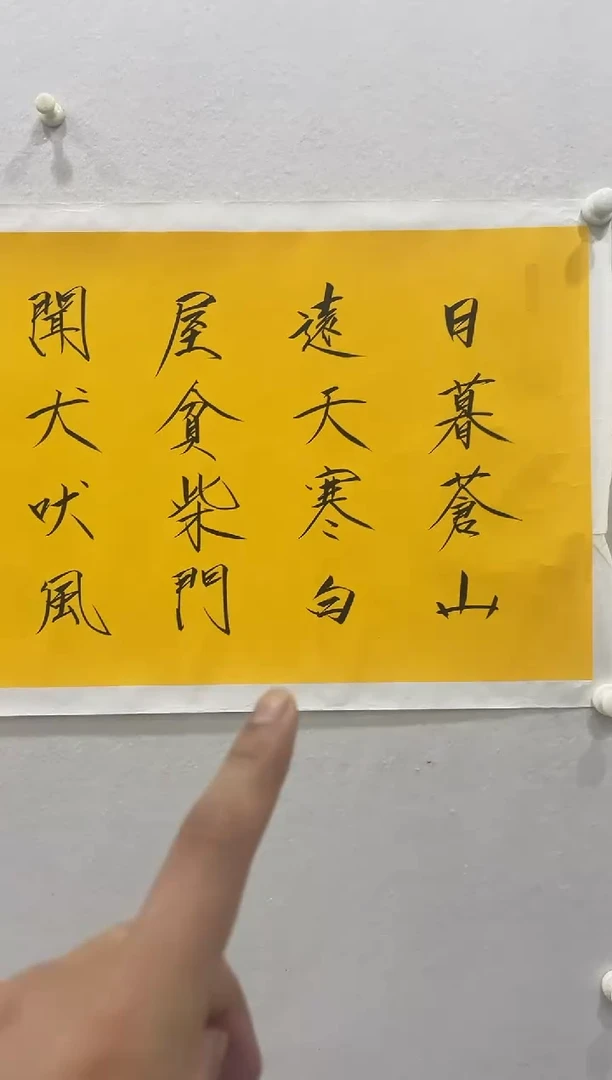 日暮蒼山
遠天寒白
屋貧柴門
聞犬吠風